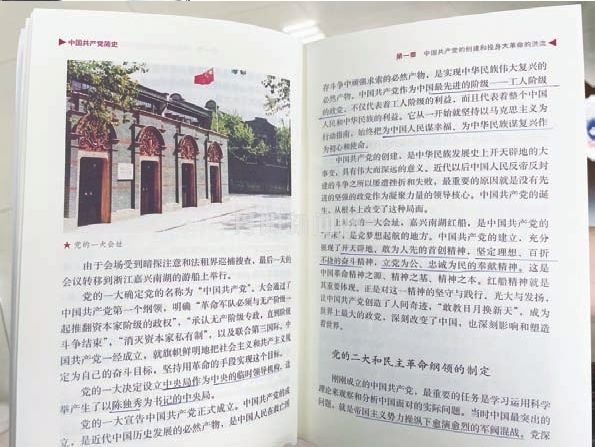 中国共产党简史
★ 党的一大会址
由于会场受到暗探注意和法租界巡捕搜查，最后一天的
会议转移到浙江嘉兴南湖的游船上举行。
党的一大确定党的名称为“中国共产党”，大会通过了
中国共产党第一个纲领，明确“革命军队必须与无产阶级一
起推翻资本家阶级的政权”，“承认无产阶级专政，直到阶级
斗争结束”，“消灭资本家私有制”，以及联合第三国际。中
国共产党一经成立，就旗帜鲜明地把社会主义和共产主义规
定为自己的奋斗目标，坚持用革命的手段实现这个目标。
党的一大决定设立中央局作为中央的临时领导机构，选
举产生了以陈独秀为书记的中央局。
党的一大宣告中国共产党正式成立。中国共产党的成
立，是近代中国历史发展的必然产物，是中国人民在救亡图
第一章 中国共产党的创建和投身大革命的洪流
存斗争中顽强求索的必然产物，是实现中华民族伟大复兴的
必然产物。中国共产党作为中国最先进的阶级——工人阶级
的政党，不仅代表着工人阶级的利益，而且代表着整个中国
人民和中华民族的利益。它从一开始就坚持以马克思主义为
行动指南，始终把为中国人民谋幸福、为中华民族谋复兴作
为初心和使命。
中国共产党的创建，是中华民族发展史上开天辟地的大
事变，具有伟大而深远的意义。近代以后中国人民反帝反封
建的斗争之所以屡遭挫折和失败，最重要的原因就是没有先
进的坚强的政党作为凝聚力量的领导核心。中国共产党的诞
生，从根本上改变了这种局面。
上海党的一大会址，嘉兴南湖红船，是中国共产党的
“产床”，是党梦想起航的地方。中国共产党的建立，充分
展现了开天辟地、敢为人先的首创精神，坚定理想、百折
不挠的奋斗精神，立党为公、忠诚为民的奉献精神。这是
中国革命精神之源、精神之基、精神之本。红船精神就是
其重要体现。正是对这一精神的坚守与践行、光大与发扬，
让中国共产党创造了人间奇迹，“敢教日月换新天”，成为
世界上最大的政党，深刻改变了中国，也深刻影响和塑造
着世界。
党的二大和民主革命纲领的制定
刚刚成立的中国共产党，最重要的任务是学习运用科学
理论来观察和分析中国面对的实际问题。当时中国最突出的
问题，就是帝国主义势力操纵下愈演愈烈的军阀混战。党深